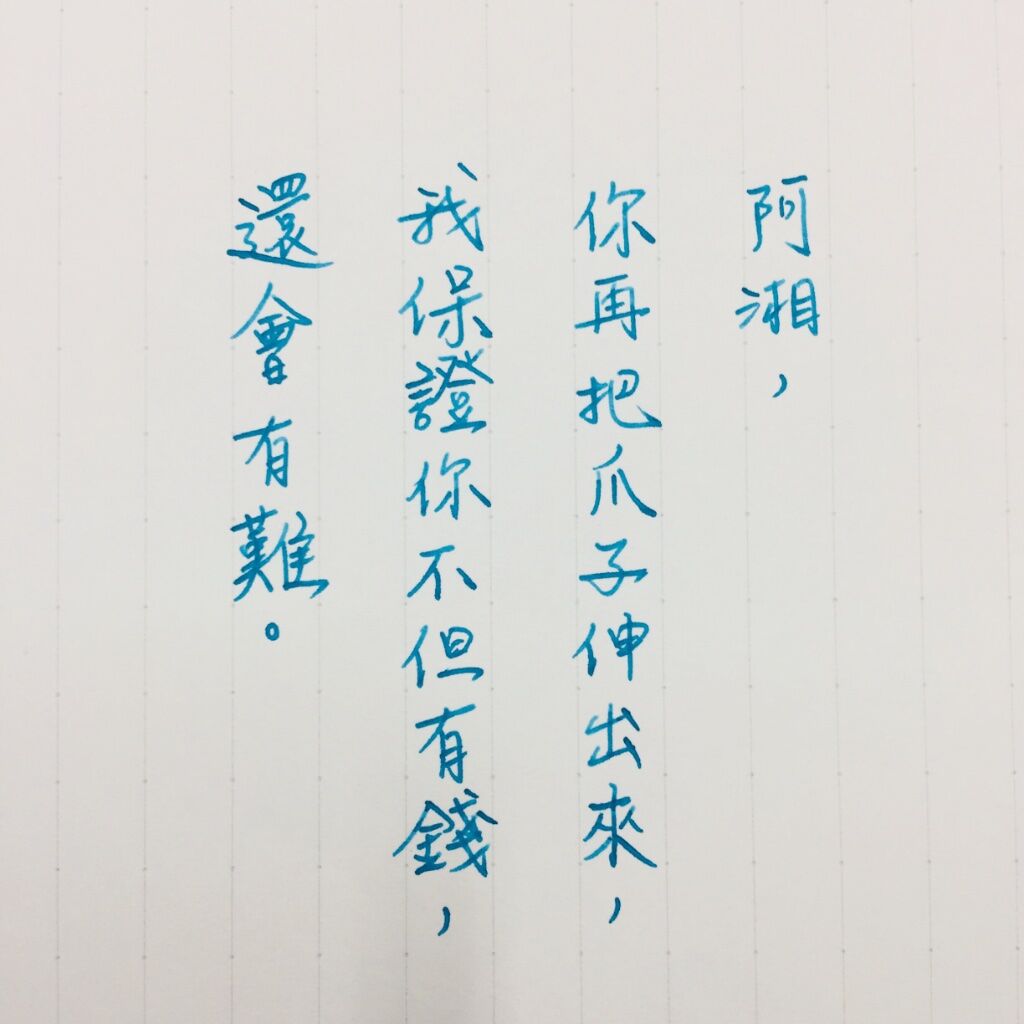 阿湘，
你再把爪子伸出來，
我保證你不但有錢，
還會有難。